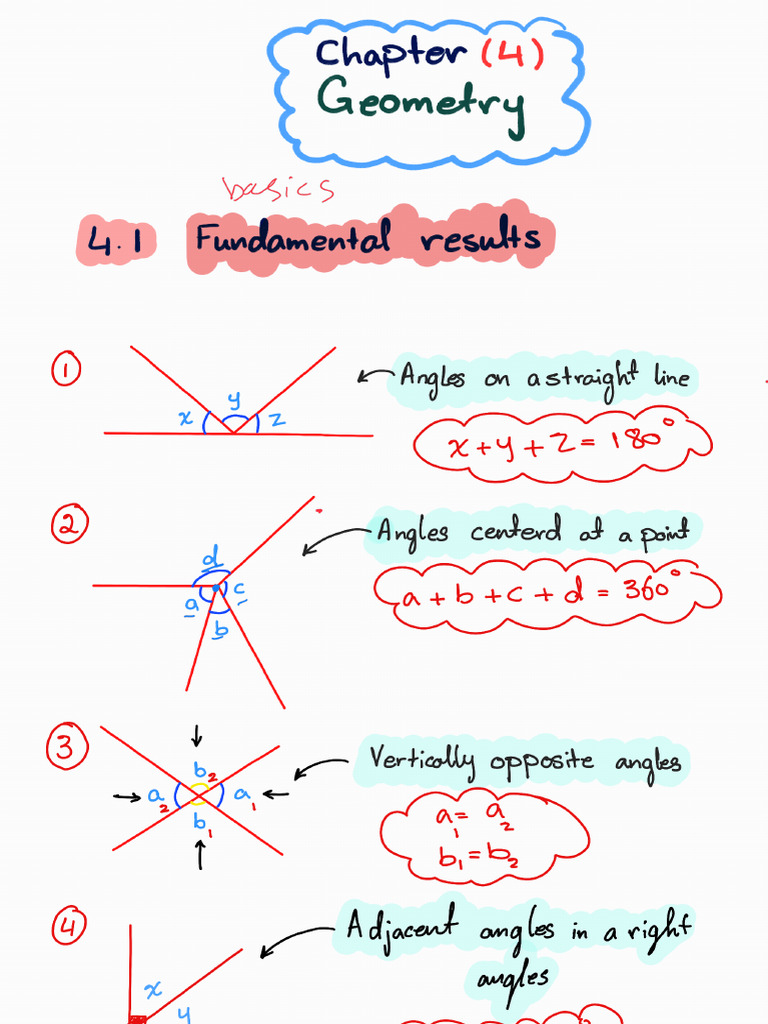 Chapter (4)
Geometry
basics
4.1 Fundamental results
1
x y z
Angles on a straight line
x + y + z = 180°
2
d
a c
b
Angles centerd at a point
a + b + c + d = 360°
3
b₂
a₂ a₁
b₁
Vertically opposite angles
a₁ = a₂
b₁ = b₂
4
x
y
Adjacent angles in a right
angles